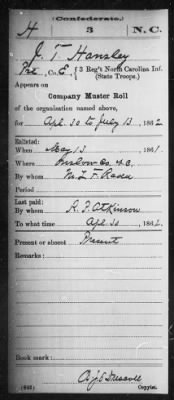 (Confederate.)
H 3 N.C.
J. T. Hansley
Pvt, Co. E, 3 Reg't North Carolina Inf.
(State Troops.)
Appears on
Company Muster Roll
of the organization named above,
for Apl. 30 to July 13, 1862
Enlisted:
When May 13, 1861
Where Onslow Co. N.C.
By whom
Period
Last paid:
By whom A. T. Atkinson
To what time Apl. 30, 1862
Present or absent Present
Remarks:
Book mark:
(642)
Copyist.